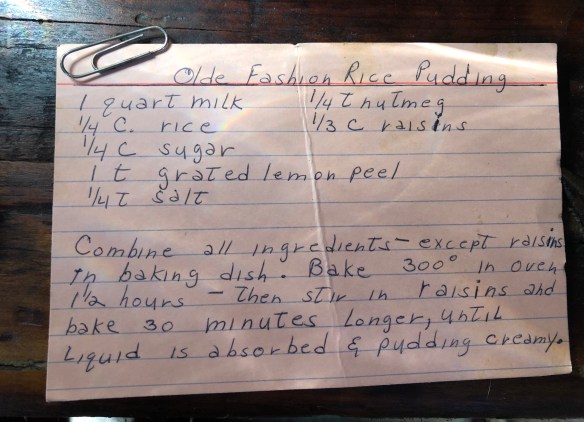 Olde Fashion Rice Pudding
1 quart milk
1/4 t nutmeg
1/4 C. rice
1/3 C raisins
1/4 C sugar
1 t grated lemon peel
1/4 t salt
Combine all ingredients - except raisins
in baking dish. Bake 300° in oven
1 1/2 hours - then stir in raisins and
bake 30 minutes longer, until
Liquid is absorbed & pudding creamy.